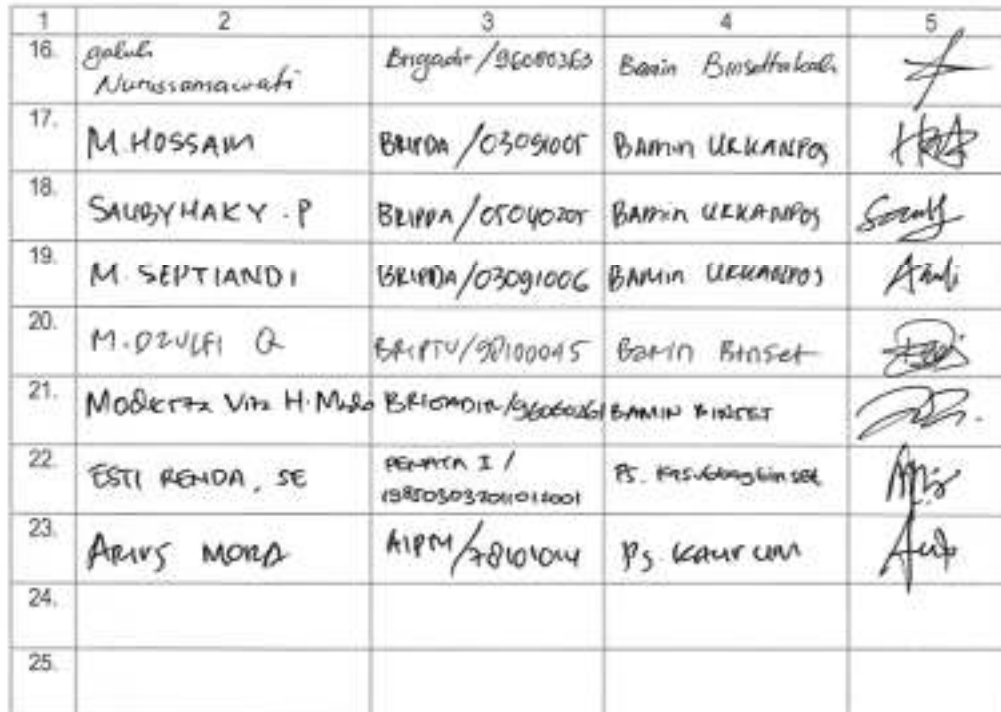 1 2 3 4 5
16. galuh Nurussamawati Brigadir/96080363 Bamin
17. M. HOSSAM BRIPDA/03091005 BAMIN URKANPOS
18. SAUBYHAKY .P BRIPDA/05040205 BAMIN URKANPOS
19. M. SEPTIANDI BRIPDA/03091006 BAMIN URKANPOS Andi
20. M. DZULFI Q BRIPTU/98100045 Bamin Binset
21. Vita H. BRIGADIR/ BAMIN BINSET
22. ESTI RENDA, SE PENATA I/ 198503032011012001 PS. Kasubbagbinset
23. ARIUS MORA AIPTU/78101014 Ps. KAUR UM
24.
25.